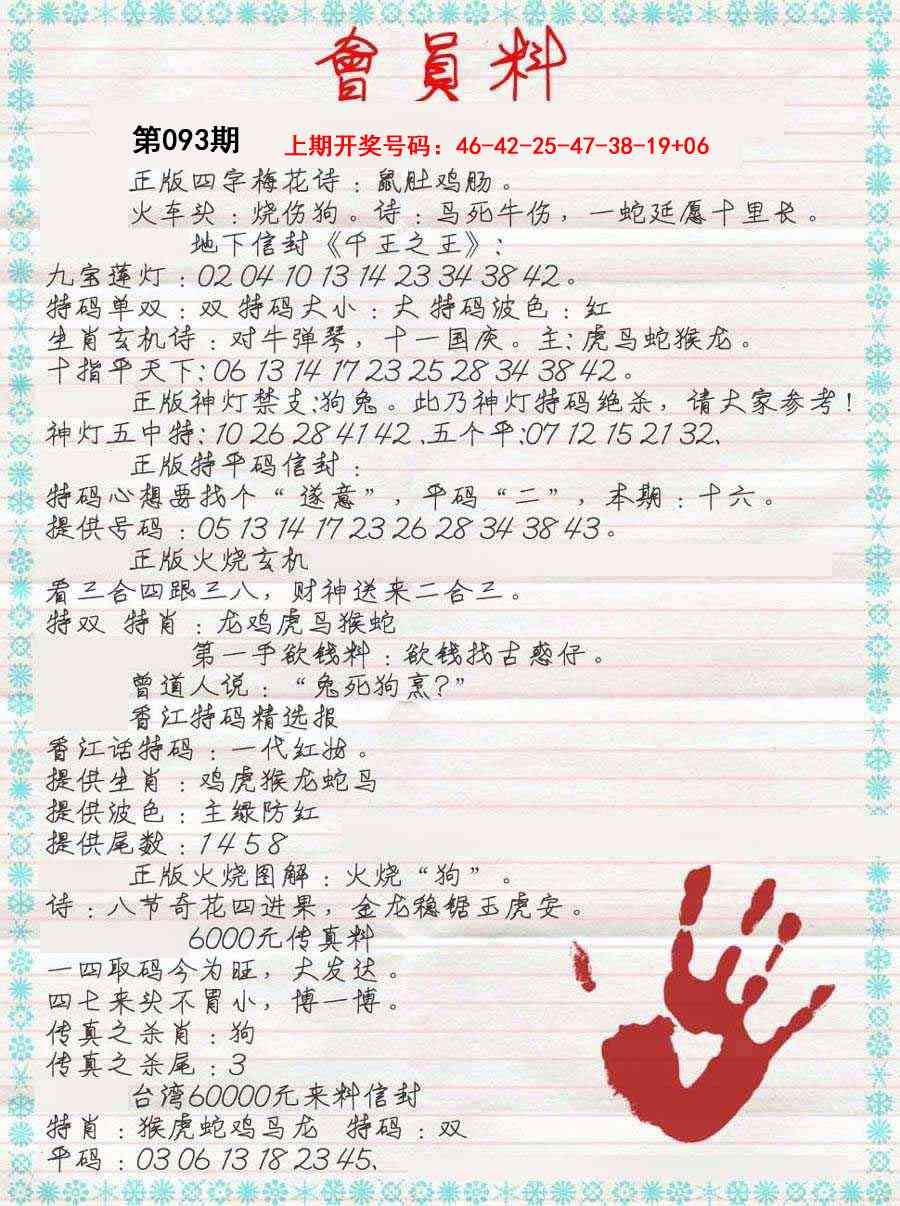 會員料
第093期 上期开奖号码：46-42-25-47-38-19+06
正版四字梅花诗：鼠肚鸡肠。
火车头：烧伤狗。诗：鸟死牛伤，一蛇延愿十里长。
地下信封《千王之王》：
九宝莲灯：02 04 10 13 14 23 34 38 42。
特码单双：双 特码大小：大 特码波色：红
生肖玄机诗：对牛弹琴，十一国庆。主：虎鸟蛇猴龙。
十指平天下：06 13 14 17 23 25 28 34 38 42。
正版神灯禁支：狗兔。此乃神灯特码绝杀，请大家参考！
神灯五中特：10 26 28 41 42、五个平：07 12 15 21 32、
正版特平码信封：
特码心想要找个“遂意”，平码“二”，本期：十六。
提供号码：05 13 14 17 23 26 28 34 38 43。
正版火烧玄机
看三合四跟三八，财神送来二合三。
特双 特肖：龙鸡虎鸟猴蛇
第一手欲钱料：欲钱找古惑仔。
曾道人说：“兔死狗烹？”
香江特码精选报
香江话特码：一代红妆。
提供生肖：鸡虎猴龙蛇鸟
提供波色：主绿防红
提供尾数：1 4 5 8
正版火烧图解：火烧“狗”。
诗：八节奇花四进果，金龙稳锯玉虎安。
6000元传真料
一四取码今为旺，大发达。
四七来头不胃小，博一博。
传真之杀肖：狗
传真之杀尾：3
台湾60000元来料信封
特肖：猴虎蛇鸡马龙 特码：双
平码：03 06 13 18 23 45、